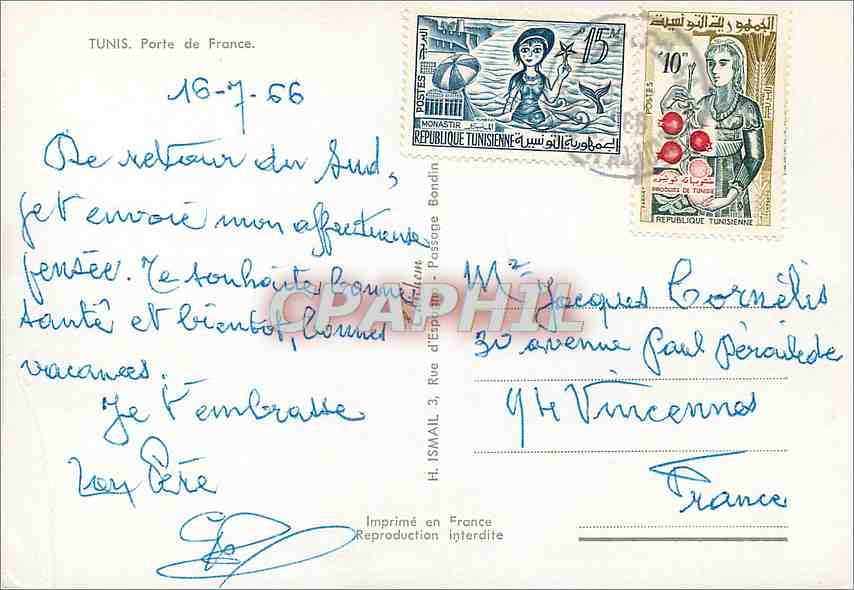 TUNIS. Porte de France.
16-7-66
De retour du Sud,
je t'envoie mon affectueuse
pensée. Te souhaite bonne
santé et bientôt, bonnes
vacances.
Je t'embrasse
Ton Père
H. ISMAIL 3, Rue d'Espagne - Passage Bondin
CPAPHIL
Imprimé en France
Reproduction interdite
15 M
POSTES
MONASTIR
REPUBLIQUE TUNISIENNE الجمهورية التونسية
الجمهورية التونسية
10 M
POSTES
منتوجات تونسية
PRODUITS DE TUNISIE
REPUBLIQUE TUNISIENNE
Mr Jacques Cornélis
30 avenue Paul Déroulède
94 Vincennes
France